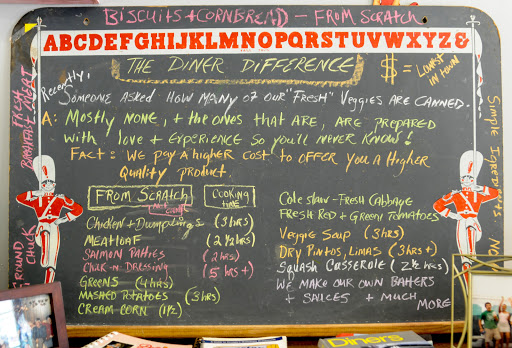 BISCUITS + CORNBREAD — FROM SCRATCH
ABCDEFGHIJKLMNOPQRSTUVWXYZ&
THE DINER DIFFERENCE
$ = LOWEST IN TOWN
Recently,
SOMEONE ASKED HOW MANY OF OUR "FRESH" VEGGIES ARE CANNED.
A: MOSTLY NONE, + THE ONES THAT ARE, ARE PREPARED
WITH LOVE + EXPERIENCE SO YOU'LL NEVER KNOW!
FACT: WE PAY A HIGHER COST TO OFFER YOU A HIGHER
QUALITY PRODUCT.
FRESH
GROUND CHUCK
FROM SCRATCH
COOKING TIME
CHICKEN + DUMPLINGS (3 HRS)
MEATLOAF (2 1/2 HRS)
SALMON PATTIES (2 HRS)
CHICK-N-DRESSING (5 HRS +)
GREENS (4 HRS)
MASHED POTATOES (3 HRS)
CREAM-CORN (1 1/2)
COLE SLAW - FRESH CABBAGE
FRESH RED + GREEN TOMATOES
VEGGIE SOUP (3 HRS)
DRY PINTOS, LIMAS (3 HRS +)
SQUASH CASSEROLE (2 1/2 HRS)
WE MAKE OUR OWN BATTERS
+ SAUCES + MUCH
MORE
Diners